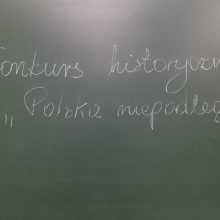 onkurs historyczn
„ Polska niepodleg